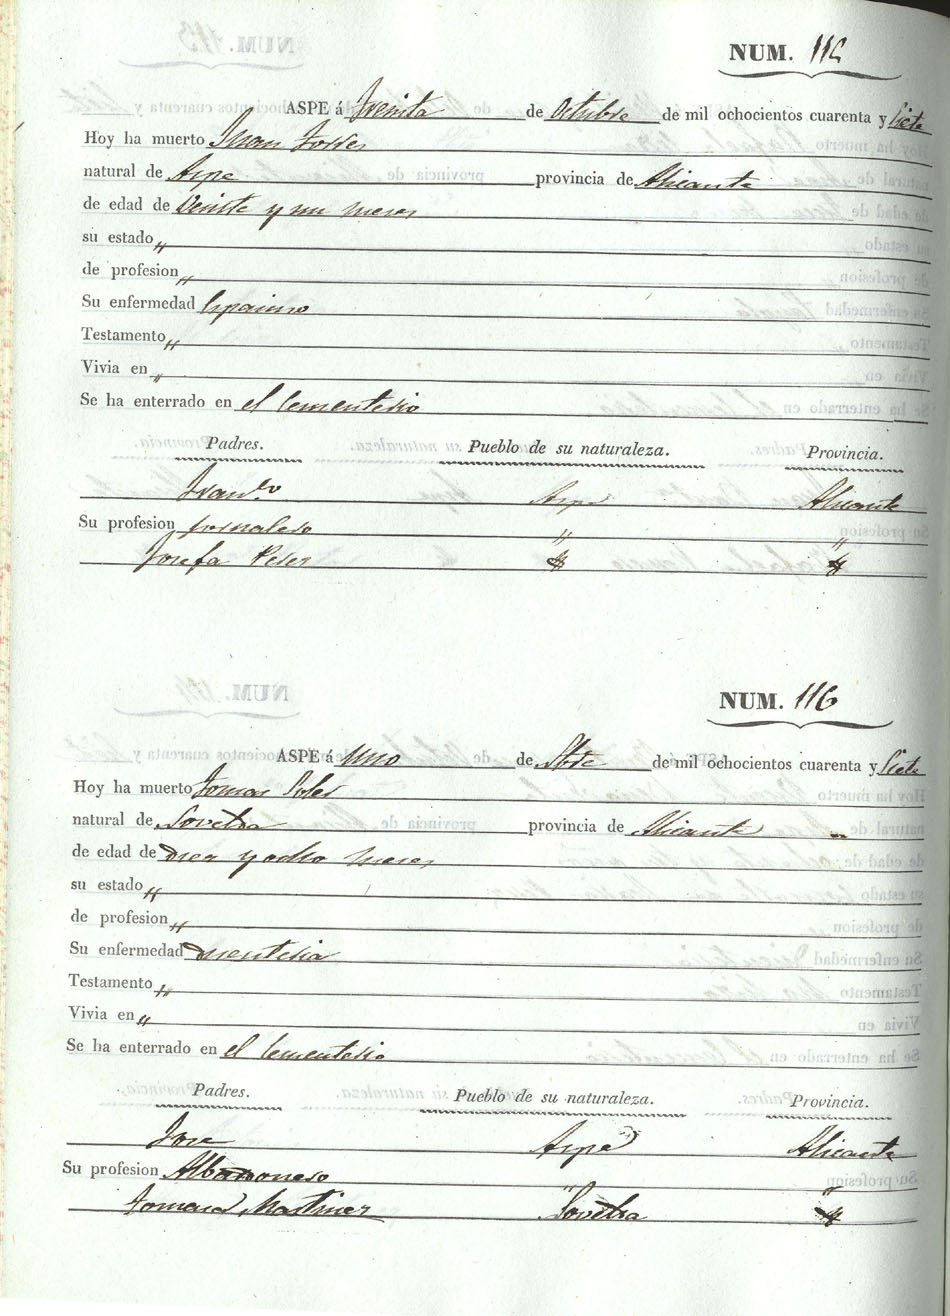 NUM. 115
ASPE á Treinta de Octubre de mil ochocientos cuarenta y Siete
Hoy ha muerto Juan Torres
natural de Aspe provincia de Alicante
de edad de Veinte y un meses
su estado "
de profesion "
Su enfermedad
Testamento "
Vivia en "
Se ha enterrado en el Cementerio
Padres. Pueblo de su naturaleza. Provincia.
Franco. Aspe Alicante
Su profesion jornalero " "
Josefa Peres
NUM. 116
ASPE á Uno de Nbre de mil ochocientos cuarenta y Siete
Hoy ha muerto Tomas Soler
natural de provincia de Alicante
de edad de Diez y ocho meses
su estado "
de profesion "
Su enfermedad
Testamento "
Vivia en "
Se ha enterrado en el Cementerio
Padres. Pueblo de su naturaleza. Provincia.
Jose Aspe Alicante
Su profesion "
Tomasa Martinez "